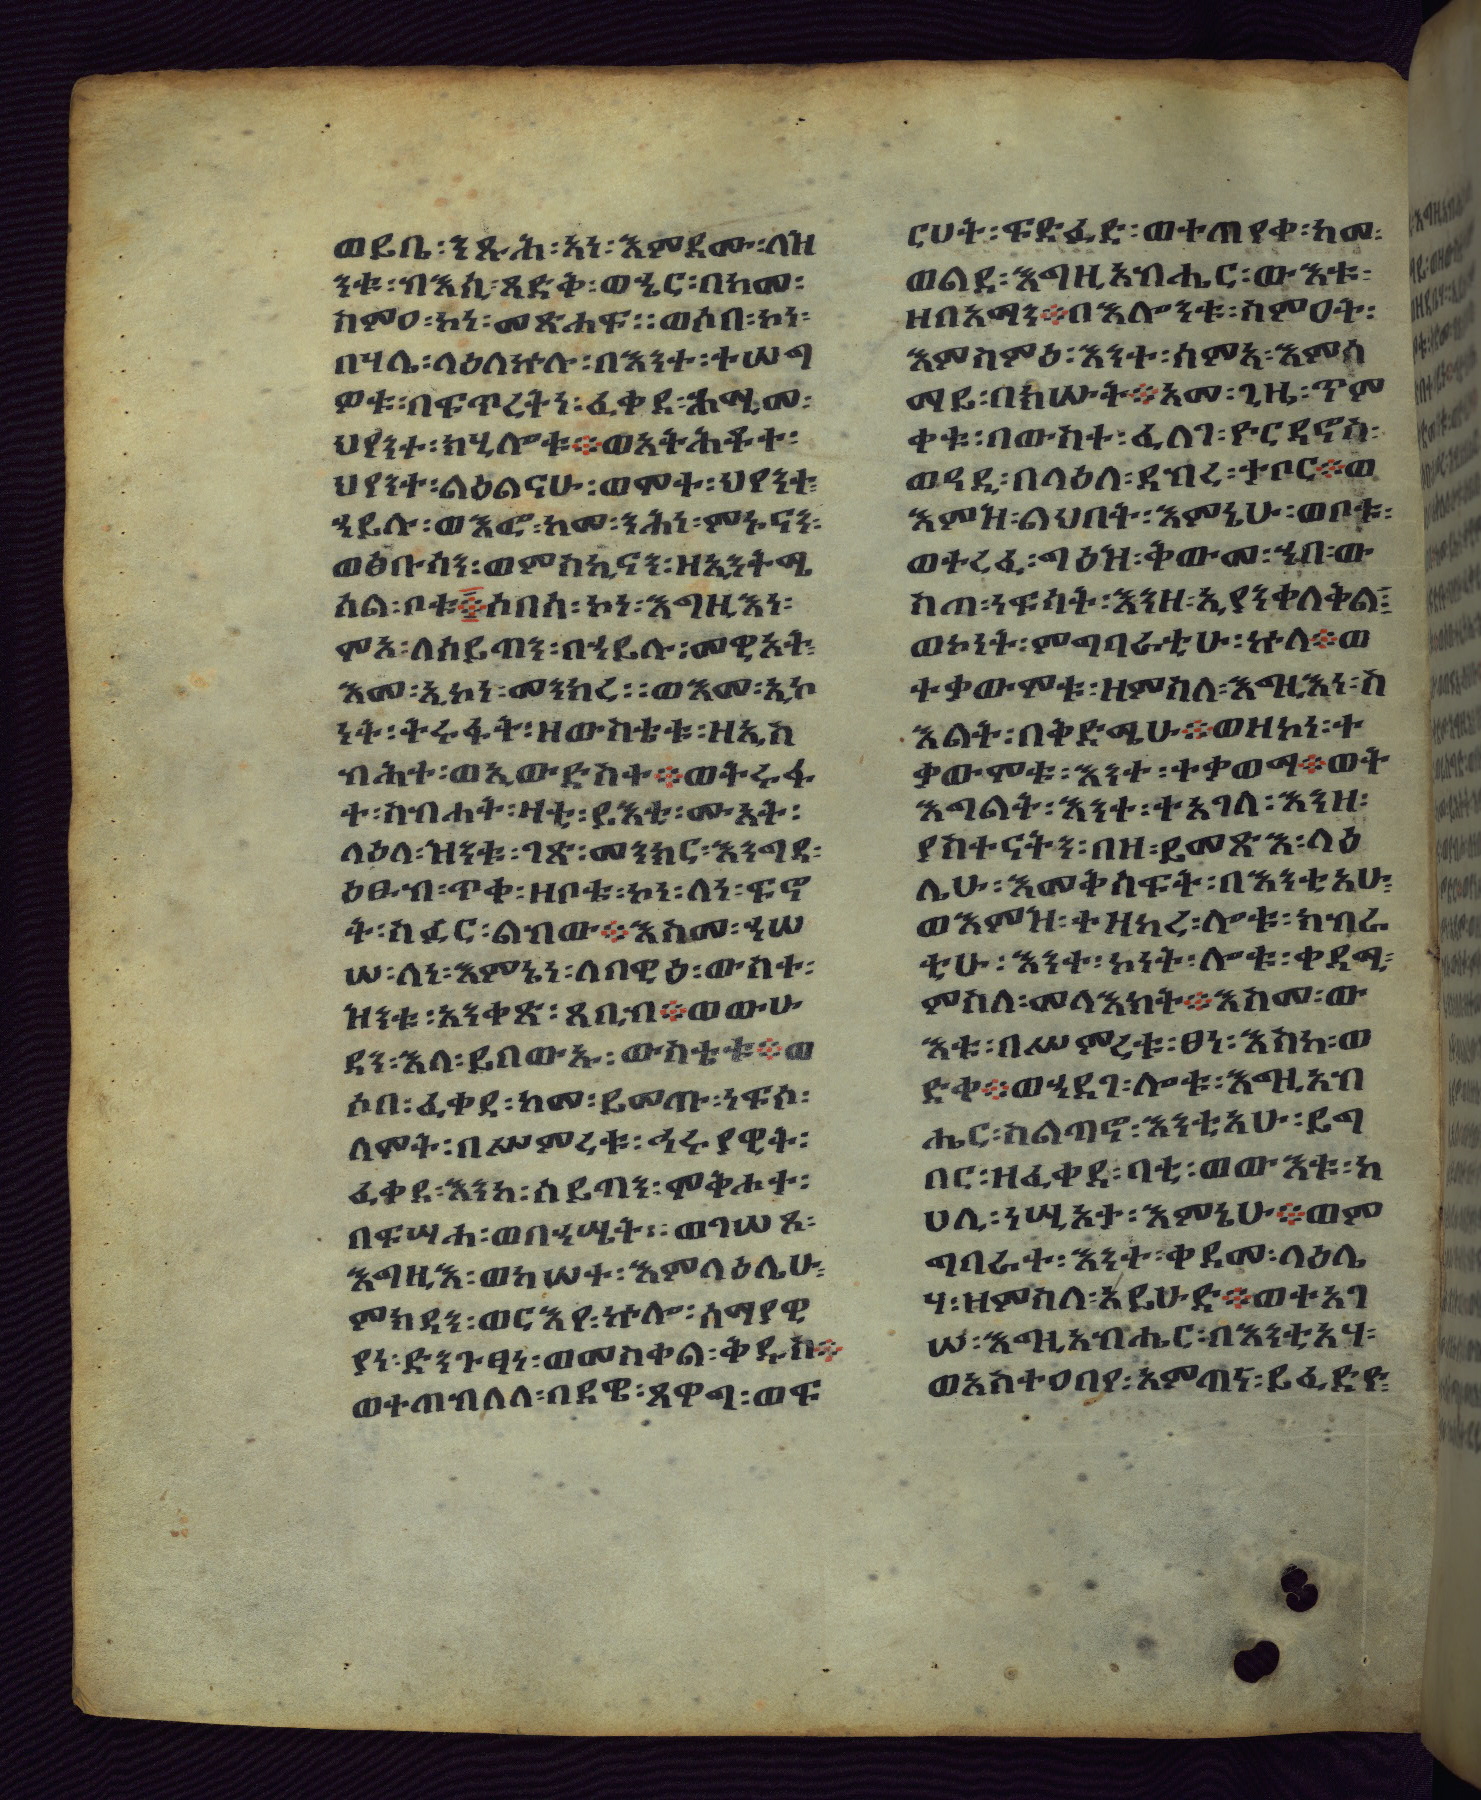 ወይቤ፡ ንጹሕ፡ አነ፡ እምደሙ፡ ለዝ
ንቱ፡ ብእሲ፡ ጻድቅ፡ ወኄር፡ በከመ፡
ስምዐ፡ ኮነ፡ መጽሐፍ፡፡ ወሶበ፡ ኮነ፡
በሃሌ፡ ላዕለ ኵሉ፡ በእንተ፡ ተሠግ
ዎቱ፡ በፍጥረትነ፡ ፈቀደ፡ ሕማመ፡
ህየንተ፡ ክሂሎቱ፨ ወአትሕቶተ፡
ህየንተ፡ ልዕልናሁ፡ ወሞተ፡ ህየንተ፡
ኀይሉ፡ ወእፎ፡ ከመ፡ ንሕነ፡ ምኑናን፡
ወፅቡሳን፡ ወምስኪናን፡ ዘኢንትሜ
ሰል፡ ቦቱ፨ ሶበሰ፡ ኮነ፡ እግዚእነ፡
ሞአ፡ ለሰይጣን፡ በኀይሉ፡ መዊአት፡
እመ፡ ኢኮነ፡ መንክረ፡፡ ወእመ፡ ኢኮ
ነት፡ ትሩፋት፡ ዘውስቴቱ፡ ዘኢስ
ብሕተ፡ ወኢውድስተ፨ ወትሩፋ
ተ፡ ስብሐት፡ ዛቲ፡ ይእቲ፡ ሙአት፡
ላዕለ፡ ዝንቱ፡ ገጽ፡ መንክር፡ እንግዳ፡
ዕፁብ፡ ጥቀ፡ ዘቦቱ፡ ኮነ፡ ለነ፡ ፍኖ
ት፡ ስፉር፡ ልብው፨ እስመ፡ ኀሠ
ሠ፡ ለነ፡ እምኔነ፡ ለበዊዕ፡ ውስተ፡
ዝንቱ፡ አንቀጽ፡ ጸቢብ፨ ወውሁ
ዳን፡ እለ፡ ይበውኡ፡ ውስቴቱ፨ ወ
ሶበ፡ ፈቀደ፡ ከመ፡ ይመጡ፡ ነፍሶ፡
ለሞት፡ በሥምረቱ፡ ኅሩያዊት፡
ፈቀደ፡ እንከ፡ ሰይጣን፡ ሞቅሐተ፡
በፍሣሐ፡ ወበኀሤት፡፡ ወገሠጸ፡
እግዚእ፡ ወከሠተ፡ እምላዕሌሁ፡
ምክዳነ፡ ወርእየ፡ ኵሎ፡ ሰማያዊ
ያነ፡ ድንጉፃነ፡ ወመስቀል፡ ቅዱስ፨
ወተጠብለለ፡ በደዌ፡ ጻዋግ፡ ወፍ
ርሀት፡ ፍድፉድ፡ ወተጠየቀ፡ ከመ፡
ወልደ፡ እግዚአብሔር፡ ውእቱ፡
ዘበአማን፨ በእሎንቱ፡ ስምዐት፡
እምስምዕ፡ እንተ፡ ሰምአ፡ እምሰ
ማይ፡ በክሡት፨ አመ፡ ጊዜ፡ ጥም
ቀቱ፡ በውስተ፡ ፈለገ፡ ዮርዳኖስ፡
ወዳዲ፡ በላዕለ፡ ደብረ፡ ታቦር፨ ወ
እምዝ፡ ልህበት፡ እምኔሁ፡ ወቦቱ፡
ወተረፈ፡ ግዕዝ፡ ቅውመ፡ ኀበ፡ ው
ስጠ፡ ነፍሳት፡ እንዘ፡ ኢያንቀለቅል፡
ወኮነት፡ ምግባራቲሁ፡ ኵለ፨ ወ
ተቃውሞቱ፡ ዘምስለ፡ እግዚእነ፡ ስ
እልት፡ በቅድሜሁ፨ ወዘኮነ፡ ተ
ቃውሞቱ፡ እንተ፡ ተቃወማ፨ ወት
እግልት፡ እንተ፡ ተአገለ፡ እንዘ፡
ያስተናትን፡ በዘ፡ ይመጽእ፡ ላዕ
ሌሁ፡ እመቅሰፍት፡ በእንቲአሁ፡
ወእምዝ፡ ተዘከረ፡ ሎቱ፡ ክብራ
ቲሁ፡ እንተ፡ ኮነት፡ ሎቱ፡ ቀዳሚ፡
ምስለ፡ መላእክት፨ እስመ፡ ው
እቱ፡ በሥምረቱ፡ ፀነ፡ እስከ፡ ወ
ድቀ፨ ወኀደገ፡ ሎቱ፡ እግዚአብ
ሔር፡ ስልጣኖ፡ እንቲአሁ፡ ይግ
በር፡ ዘፈቀደ፡ ባቲ፡ ወውእቱ፡ ከ
ሀሊ፡ ነሢአተ፡ እምኔሁ፨ ወም
ግባራተ፡ እንተ፡ ቀደመ፡ ላዕሌ
ሃ፡ ዘምስለ፡ አይሁድ፨ ወተአገ
ሠ፡ እግዚአብሔር፡ በእንቲአሃ፡
ወአስተዐበየ፡ አምጣኝ፡ ይፈድዮ፡